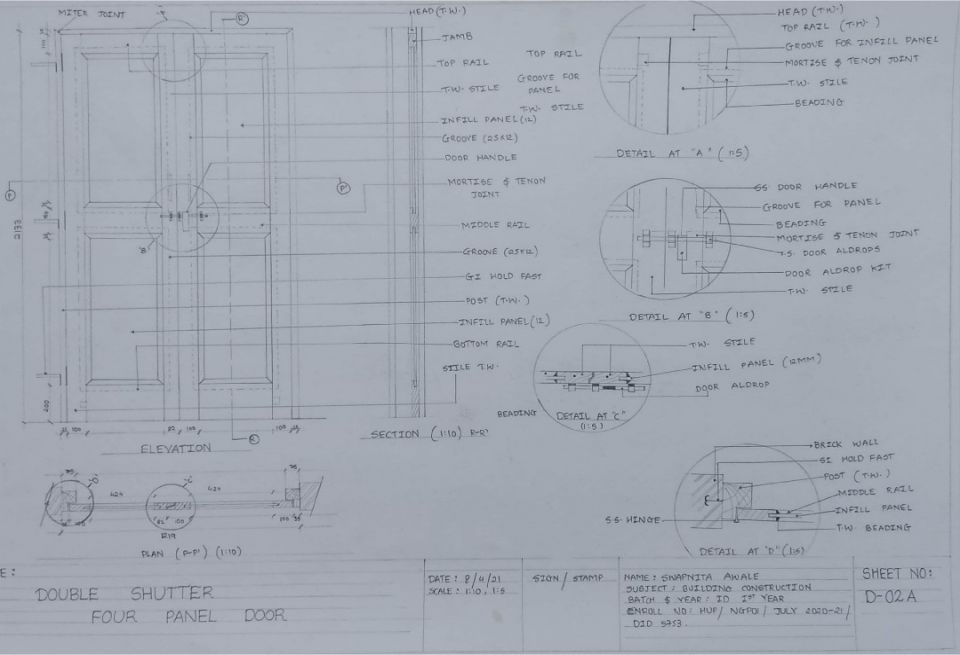 MITER JOINT
'A'
R'
HEAD (T.W.)
JAMB
TOP RAIL
T.W. STILE
INFILL PANEL (12)
GROOVE (25X12)
DOOR HANDLE
MORTISE & TENON
JOINT
MIDDLE RAIL
GROOVE (25X12)
GI HOLD FAST
POST (T.W.)
INFILL PANEL (12)
BOTTOM RAIL
STILE T.W.
P
P'
'B'
2133
200
100
82
100
100
ELEVATION
SECTION (1:10) R-R'
TOP RAIL
GROOVE FOR
PANEL
T.W. STILE
HEAD (T.W.)
TOP RAIL (T.W.)
GROOVE FOR INFILL PANEL
MORTISE & TENON JOINT
T.W. STILE
BEADING
DETAIL AT "A" (1:5)
S.S. DOOR HANDLE
GROOVE FOR PANEL
BEADING
MORTISE & TENON JOINT
S.S. DOOR ALDROPS
DOOR ALDROP KIT
T.W. STILE
DETAIL AT "B" (1:5)
T.W. STILE
INFILL PANEL (12MM)
DOOR ALDROP
BEADING
DETAIL AT "C"
(1:5)
BRICK WALL
GI HOLD FAST
POST (T.W.)
MIDDLE RAIL
INFILL PANEL
T.W. BEADING
S.S. HINGE
DETAIL AT "D" (1:5)
75
'D'
424
'C'
424
75
82
100
100
35
R19
PLAN (P-P') (1:10)
E:
DOUBLE SHUTTER
FOUR PANEL DOOR
DATE: 8/4/21
SCALE: 1:10, 1:5
SIGN / STAMP
NAME: SWAPNITA AWALE
SUBJECT: BUILDING CONSTRUCTION
BATCH & YEAR: ID 1ST YEAR
ENROLL NO: HUF/ NGP01/ JULY 2020-21/
DID 5753.
SHEET NO:
D-02 A